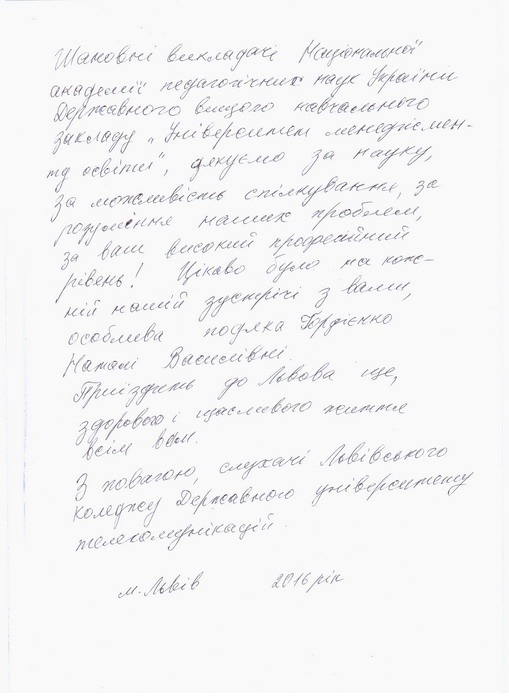 Шановні викладачі Національної
академії педагогічних наук України
Державного вищого навчального
закладу „Університет менеджмен-
ту освіти", дякуємо за науку,
за можливість спілкування, за
розуміння наших проблем,
за ваш високий професійний
рівень! Цікаво було на кож-
ній нашій зустрічі з вами,
особлива подяка Гордієнко
Наталі Василівні.
Приїздить до Львова ще,
здорового і щасливого життя
всім вам.
З повагою, слухачі Львівського
коледжу Державного університету
телекомунікацій.
м. Львів 2016 рік